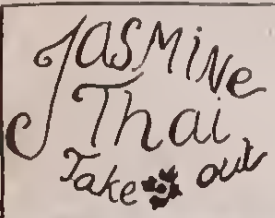 JASMINE
Thai
Take out